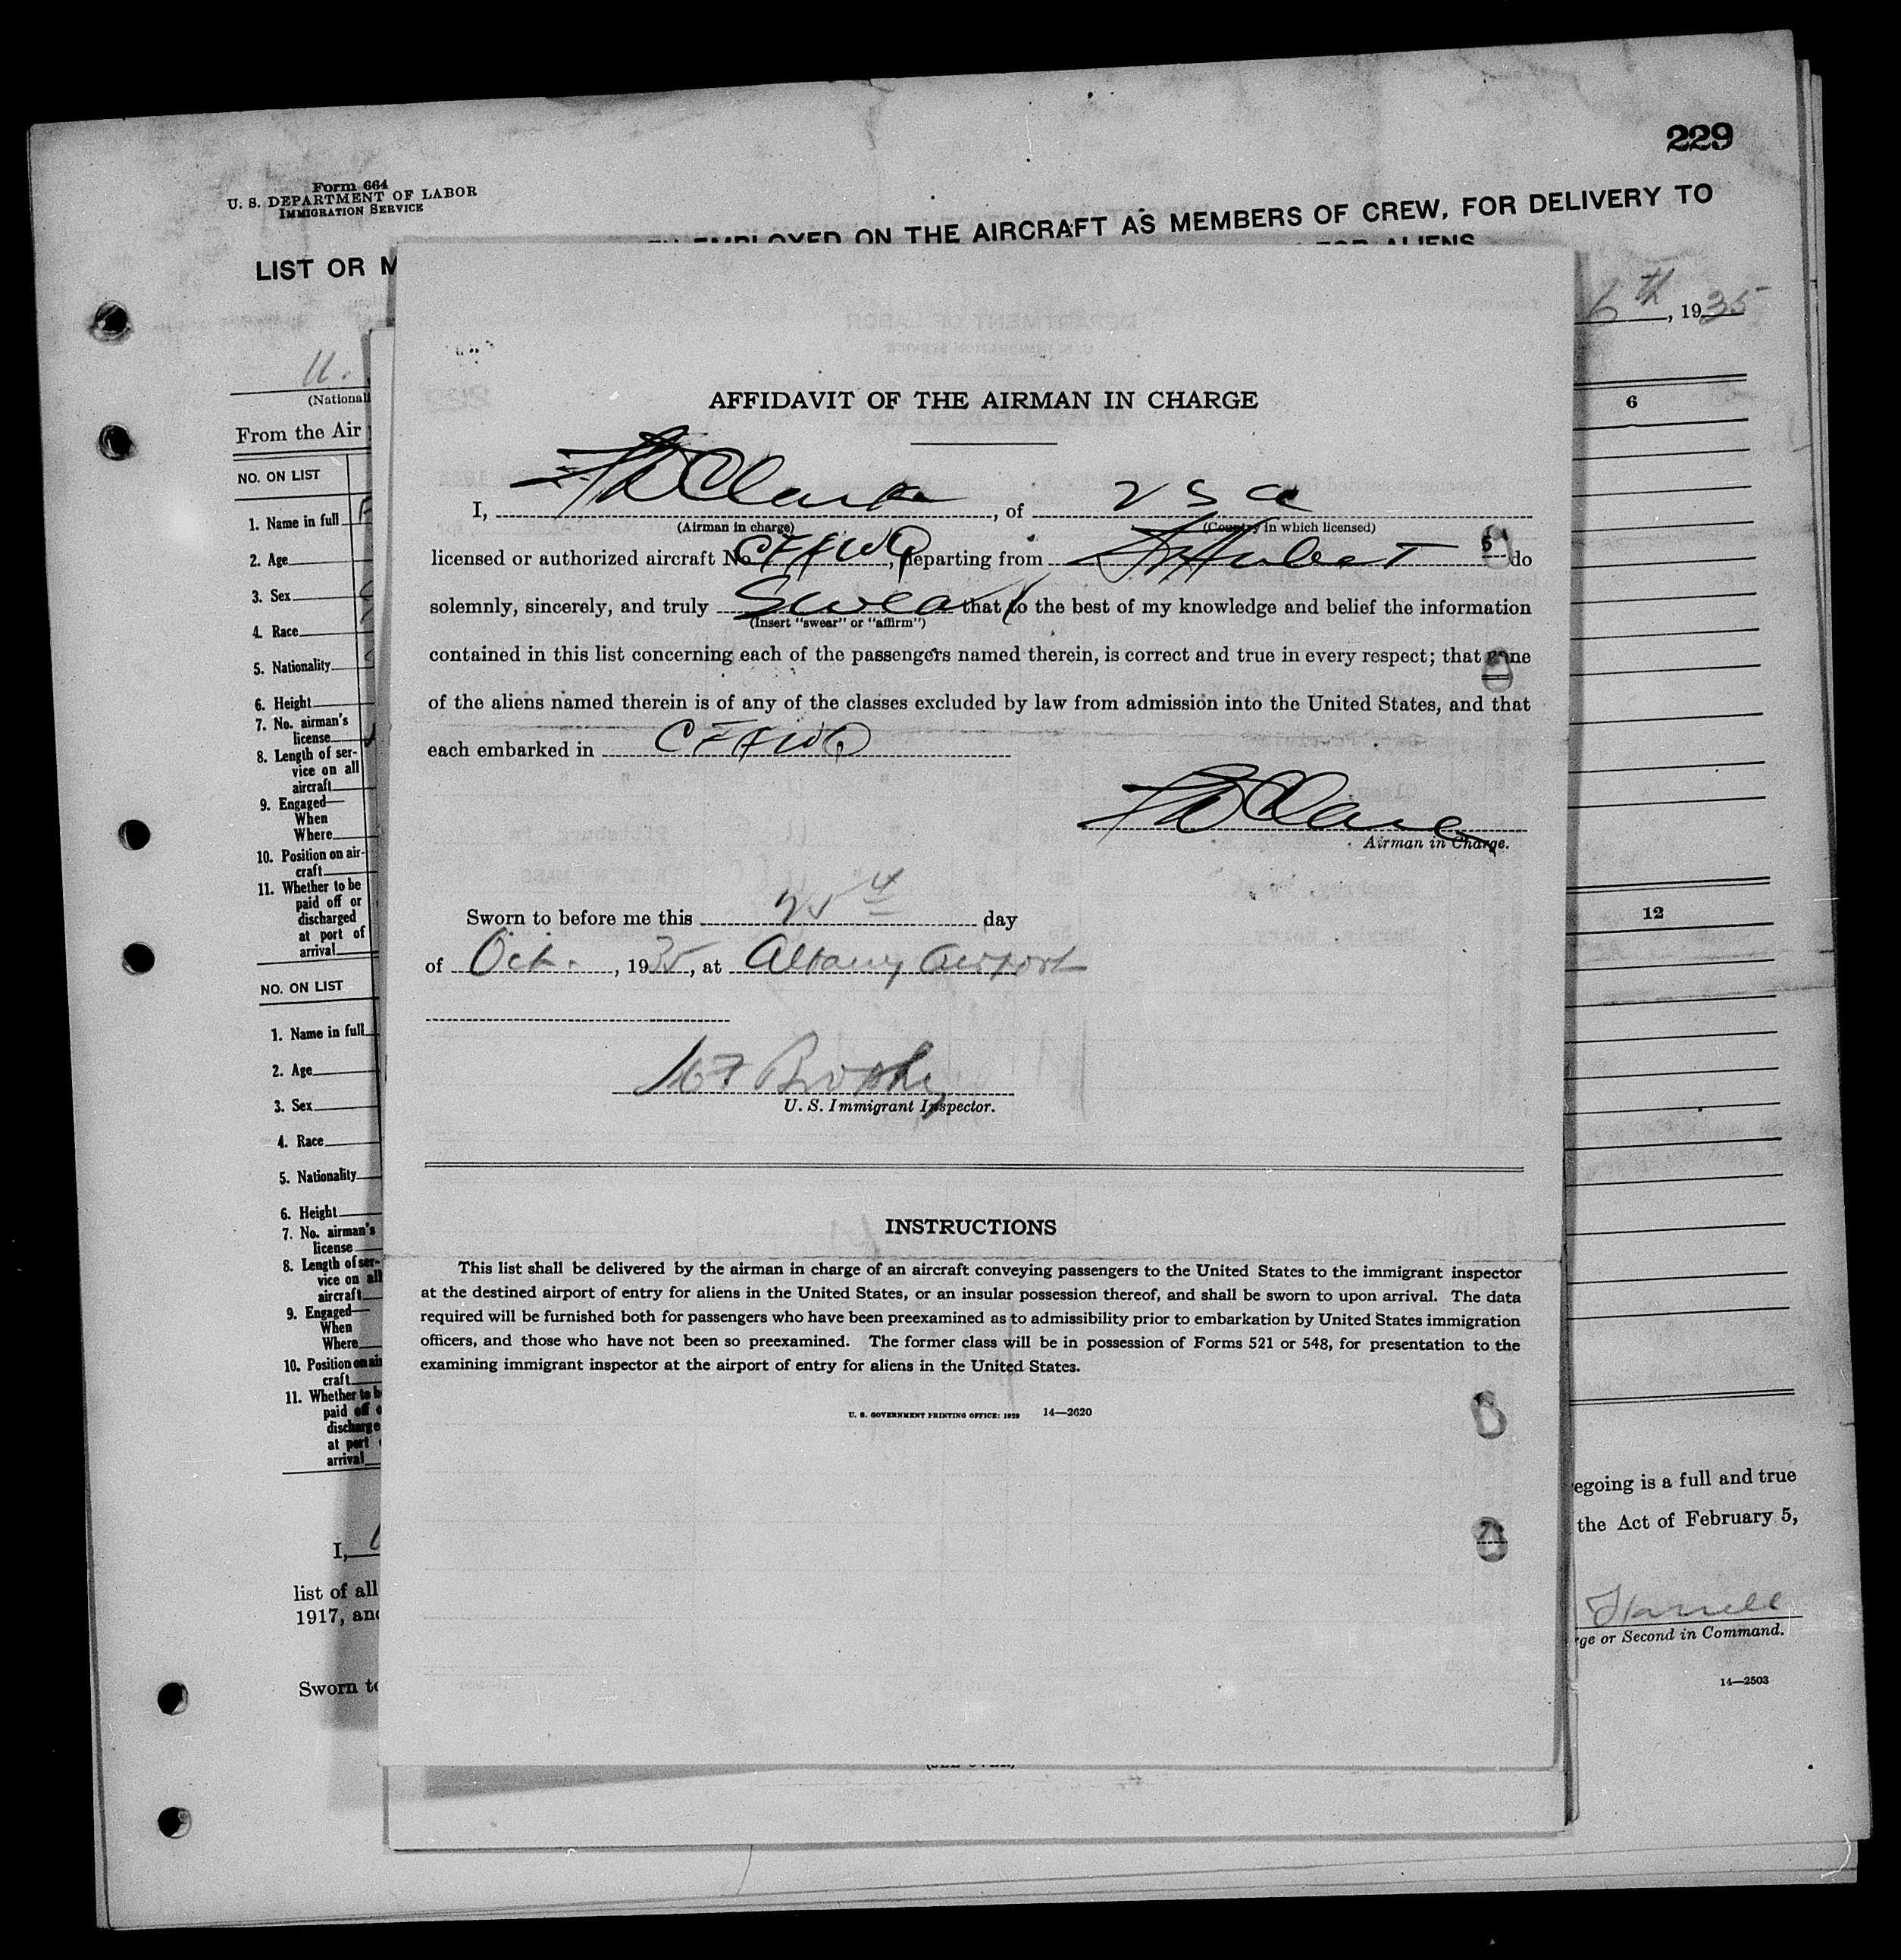 229
Form 664
U. S. DEPARTMENT OF LABOR
IMMIGRATION SERVICE
EMPLOYED ON THE AIRCRAFT AS MEMBERS OF CREW, FOR DELIVERY TO
LIST OR
FOR ALIENS
6th, 1935
U.
From the Air
NO. ON LIST
1. Name in full
2. Age
3. Sex
4. Race
5. Nationality
6. Height
7. No. airman's
license
8. Length of ser-
vice on all
aircraft
9. Engaged—
When
Where
10. Position on air-
craft
11. Whether to be
paid off or
discharged
at port of
arrival
NO. ON LIST
1. Name in full
2. Age
3. Sex
4. Race
5. Nationality
6. Height
7. No. airman's
license
8. Length of ser-
vice on all
aircraft
9. Engaged—
When
Where
10. Position on air
craft
11. Whether to b
paid off o
discharge
at port
arrival
I,
list of all
1917, and
Sworn to
AFFIDAVIT OF THE AIRMAN IN CHARGE
I, Clark, of USA
(Airman in charge) (Country in which licensed)
licensed or authorized aircraft No. CFAWQ, departing from St Hubert do
solemnly, sincerely, and truly Swear that to the best of my knowledge and belief the information
(Insert "swear" or "affirm")
contained in this list concerning each of the passengers named therein, is correct and true in every respect; that none
of the aliens named therein is of any of the classes excluded by law from admission into the United States, and that
each embarked in CFAWQ
Clark
Airman in Charge.
Sworn to before me this 25th day
of Oct., 1935, at Albany Airport
U. S. Immigrant Inspector.
INSTRUCTIONS
This list shall be delivered by the airman in charge of an aircraft conveying passengers to the United States to the immigrant inspector
at the destined airport of entry for aliens in the United States, or an insular possession thereof, and shall be sworn to upon arrival. The data
required will be furnished both for passengers who have been preexamined as to admissibility prior to embarkation by United States immigration
officers, and those who have not been so preexamined. The former class will be in possession of Forms 521 or 548, for presentation to the
examining immigrant inspector at the airport of entry for aliens in the United States.
U. S. GOVERNMENT PRINTING OFFICE: 1929 14—2620
6
12
egoing is a full and true
the Act of February 5,
rge or Second in Command.
14—2503